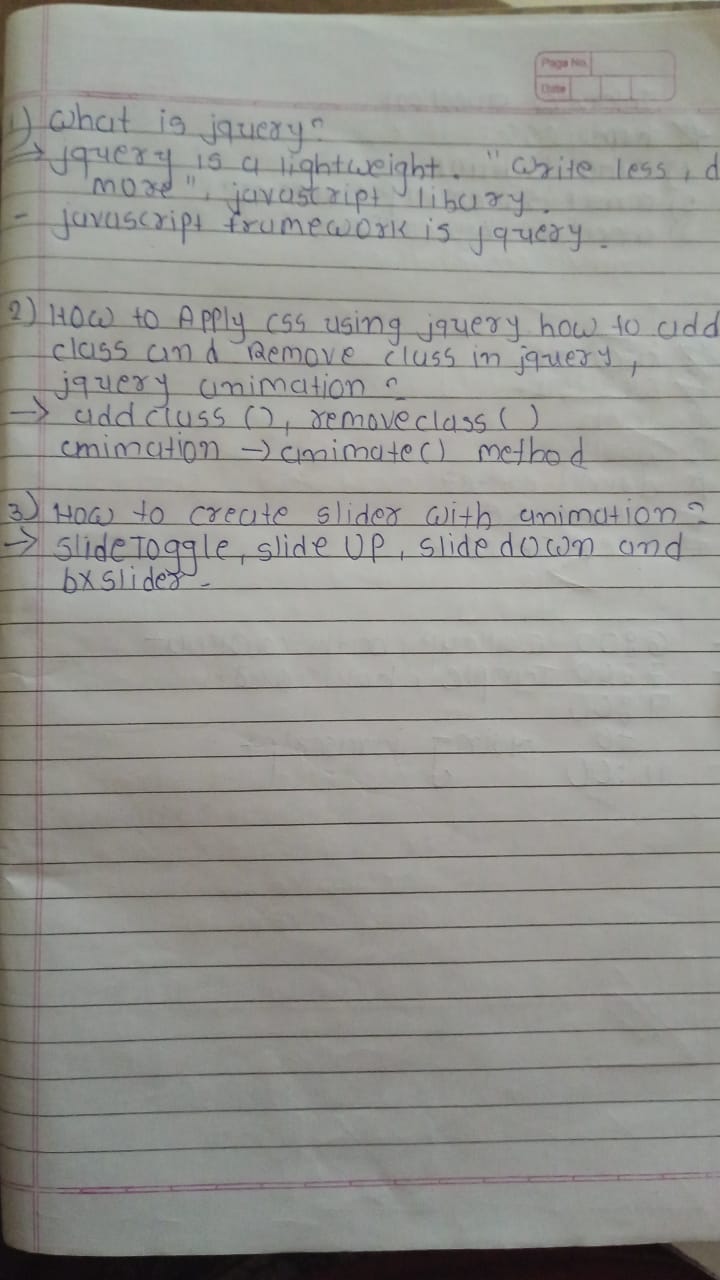 Page No.
Date
1) What is jquery?
→ jquery is a lightweight. "write less, d
more", javascript libary.
- javascript framework is jquery.
2) How to Apply css using jquery how to add
class and Remove class in jquery,
jquery animation?
→ addclass (), removeclass ()
amimation → animate() method
3) How to create slider with animation?
→ slideToggle, slide UP, slide down and
bxslider.